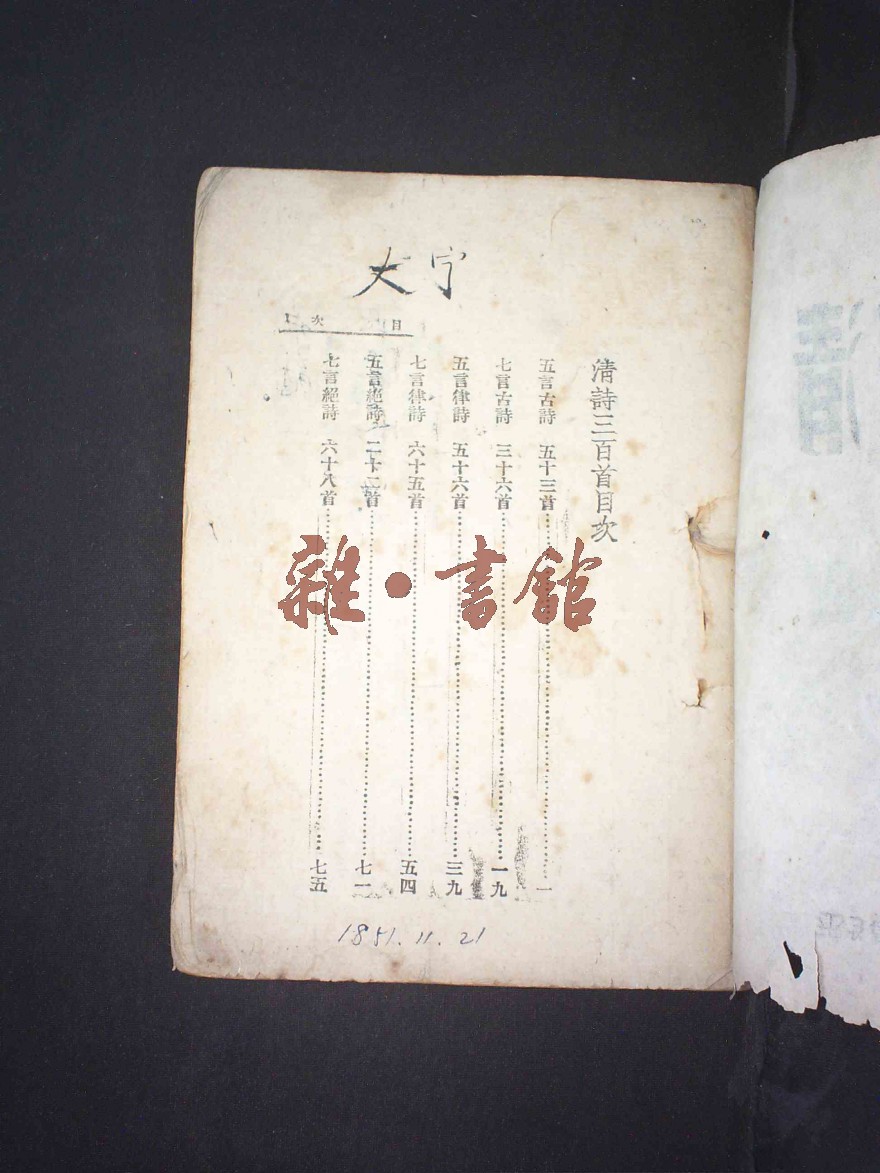 大字
目次 1
清詩三百首目次
五言古詩 五十三首 一
七言古詩 三十六首 一九
五言律詩 五十六首 三九
七言律詩 六十五首 五四
五言絕詩 二十二首 七一
七言絕詩 六十八首 七五
雜·書館
1851.11.21